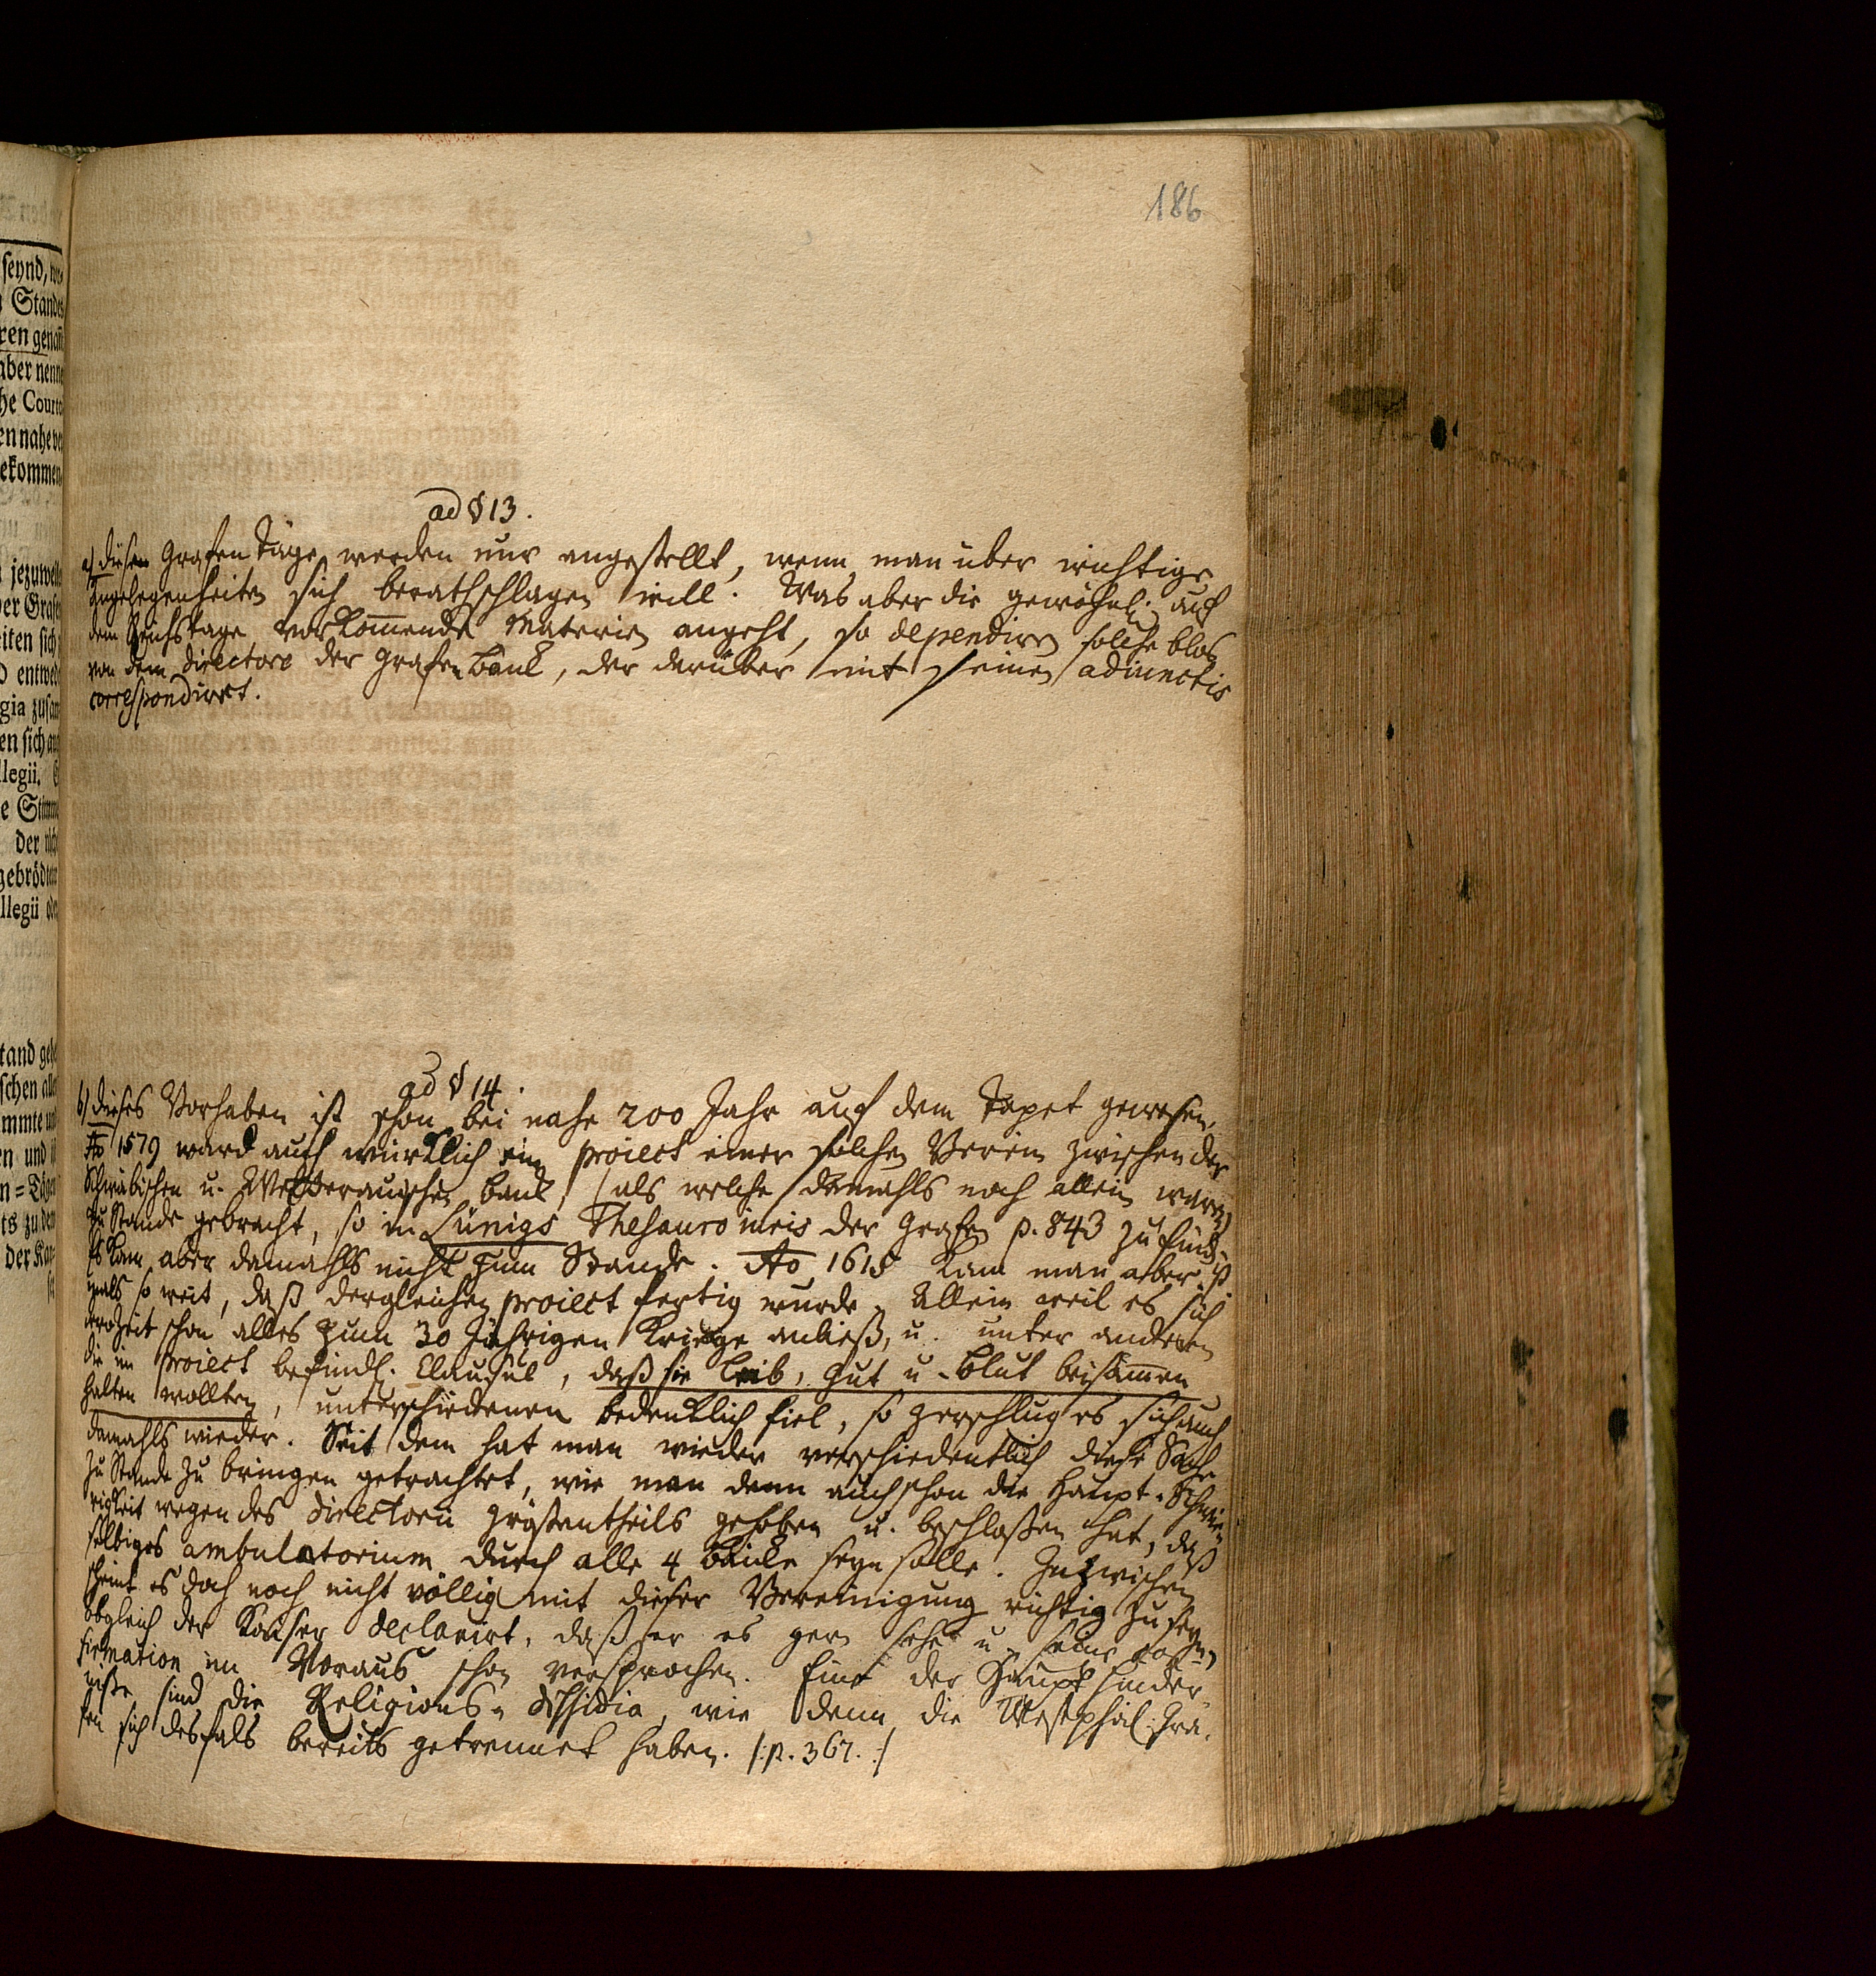 186
seynd, we-
Standes
ren genañ
aber nenne
he Courto
en nahe ve
ekommen
jezuweile
er Grafen
eiten sich
entwed
gia zusam
en sich au
llegii.
e Stimme
der nich
gebrödte
llegii ode
tand gehe
schen alle
mmte und
en und
n-Tägen
ts zu dem
der Kay-
ad § 13.
a) diese Grafen Täge werden nur angestellt, wenn man über wichtige
Angelegenheiten sich berathschlagen will. Was aber die gewöhnl. auf
dem Reichstage vorkom̄ende Materien angeht, so dependiren solche blos
von dem Directore der Grafen Banck, der darüber mit seinen adiunctis
correspondirt.
ad § 14.
b) dieses Vorhaben ist schon bei nahe 200 Jahr auf dem Tapet gewesen.
Ao 1579 ward auch würklich ein proiect einer solchen Verein zwischen der
Schwäbischen u. Wetterauischen banck, (als welche damahls noch allein waren)
zu Stande gebracht, so in Lünigs Thesauro iuris der Grafen p. 843 zu find. ist
Es kam aber damahls nicht zum Stande. Ao 1618 kam man aber
mals so weit, daß dergleichen proiect fertig wurde, Allein weil es sich
derozeit schon alles zum 30 Jährigen Kriege anließ, u. unter anderen
die im proiect befindl. Clausul, daß sie Leib, Gut u. Blut beisam̄en
halten wollten, unterschiedenen bedenklich fiel, so zerschlug es sich auch
damahls wieder. Seit dem hat man wieder verschiedentlich diese Sache
zu Stande zu bringen getrachtet, wie man denn auch schon die Haupt-Schwie-
rigkeit wegen des Directorii größentheils gehoben u. beschloßen hat, daß
selbiges ambulatorium durch alle 4 Bäncke seyn solle. Inzwischen
scheint es doch noch nicht völlig mit dieser Vereinigung richtig zu seyn,
obgleich der Kaiser declarirt, daß er es gern sehe u. seine con-
firmation im Voraus schon versprochen. Eine der Haupt hinder-
niße sind die Religions-Dissidia, wie denn die Westphäl. Gra-
fen sich desfals bereits getrennet haben. /: p. 367. :/